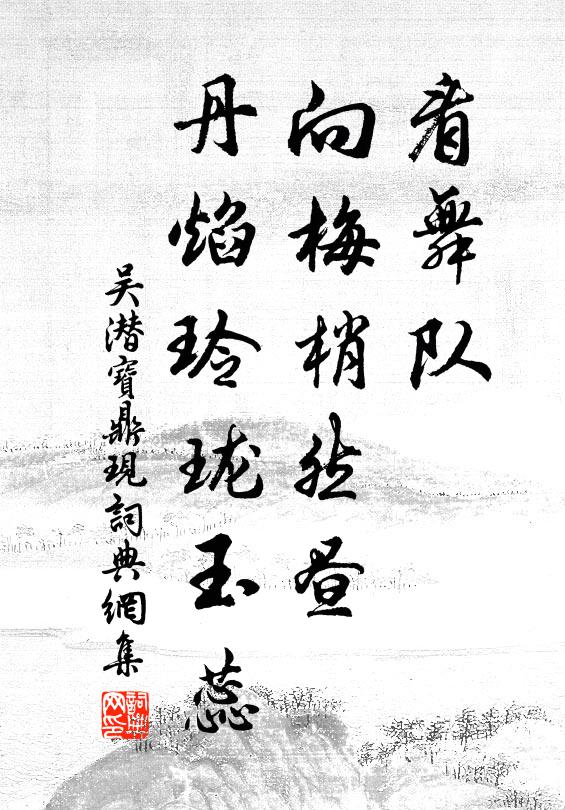 看舞队
向梅梢然昼
丹焰玲珑玉蕊
吴潜寶鼎現詞典網集